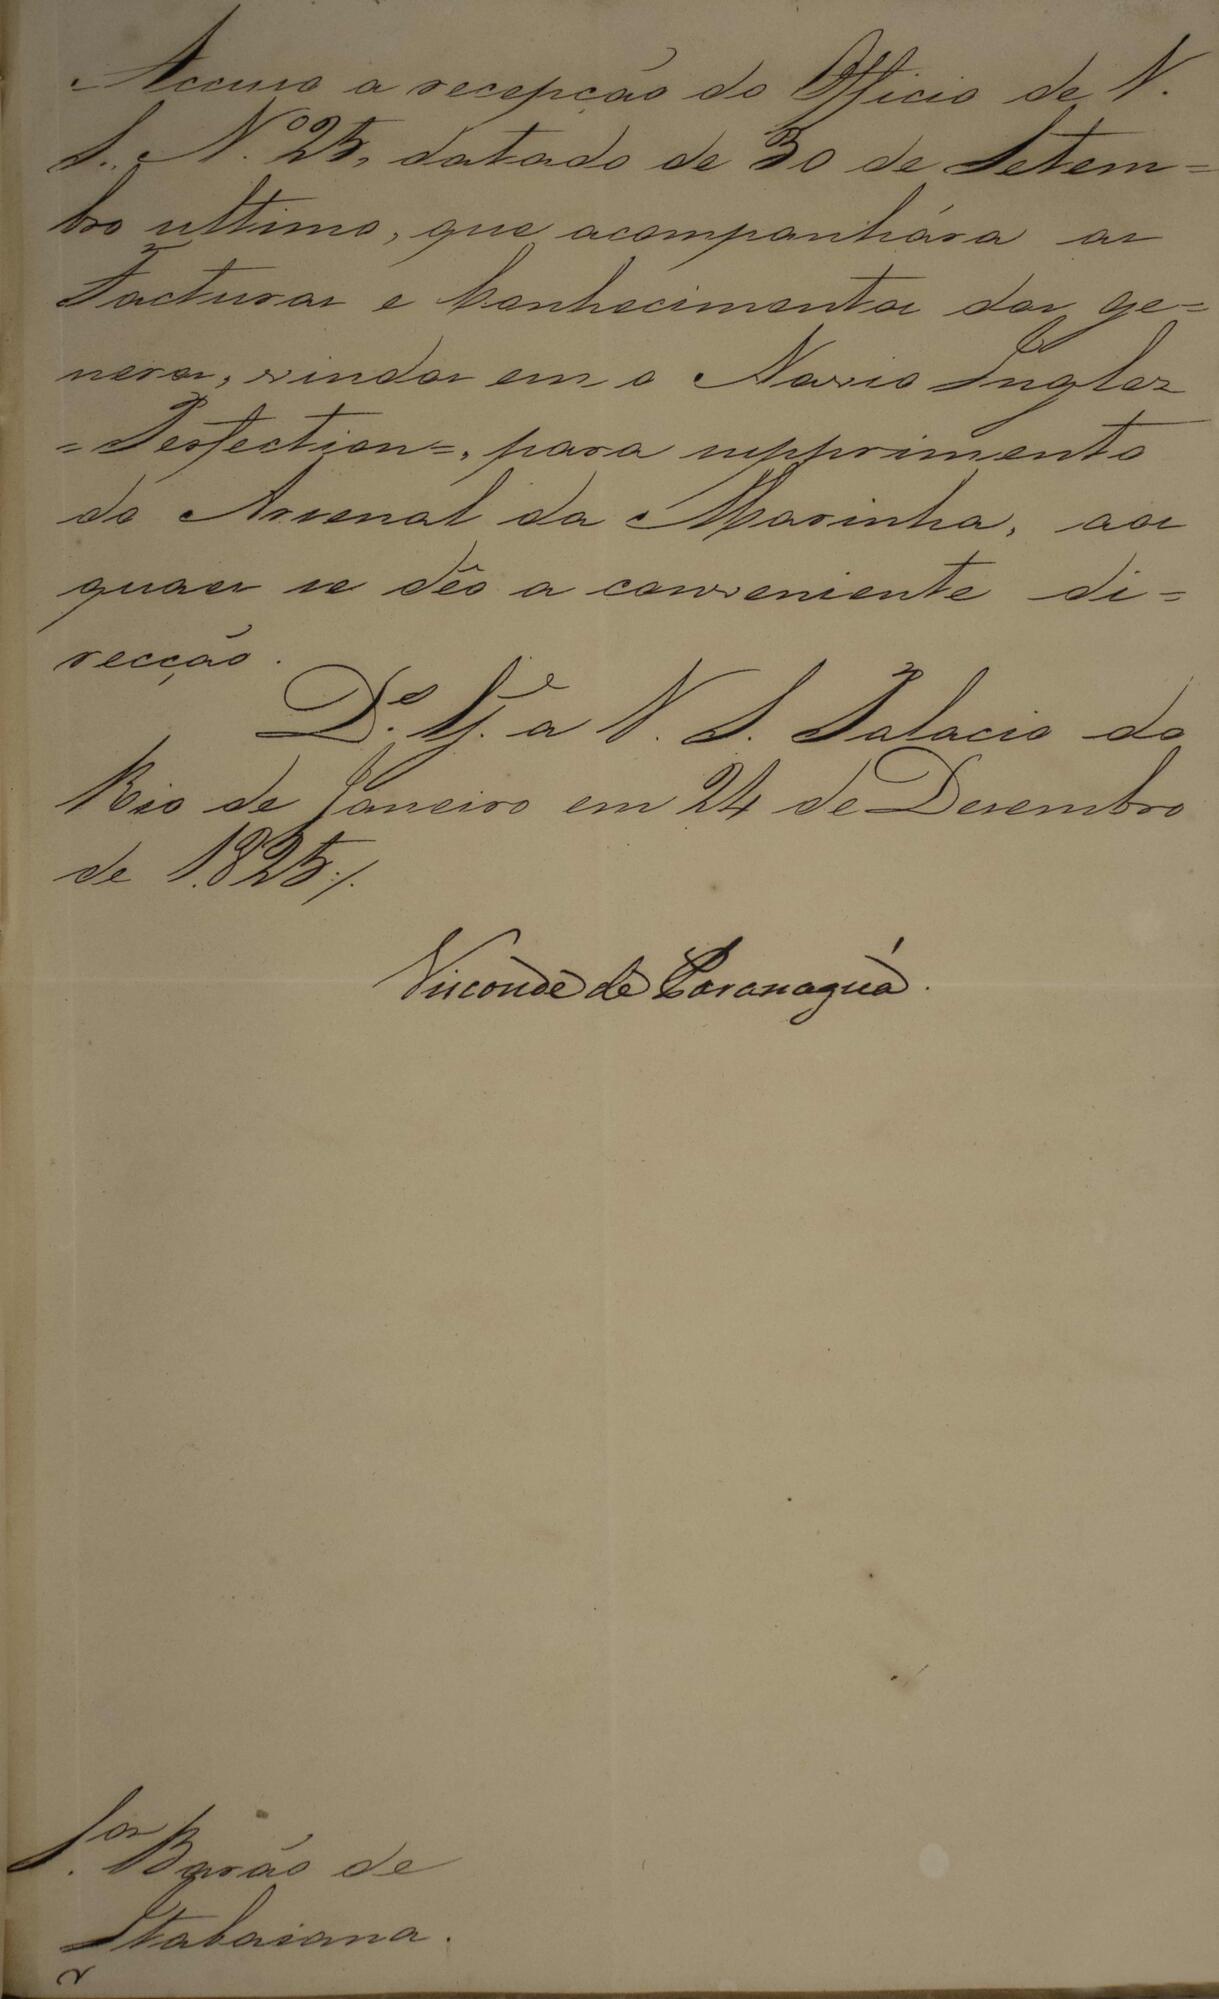 Accuso a recepção do Officio de V.
S., N.º 25, datado de 30 de Setem=
bro ultimo, que acompanhára as
Facturas e Conhecimentos dos ge=
neros, vindos em o Navio Inglez
=Perfection=, para supprimento
do Arsenal da Marinha, aos
quaes se dêo a conveniente di=
recção.
D.s G.e a V. S. Palacio do
Rio de Janeiro em 24 de Desembro
de 1.825./.
Visconde de Paranaguá.
S.or Barão de
Itabaiana.